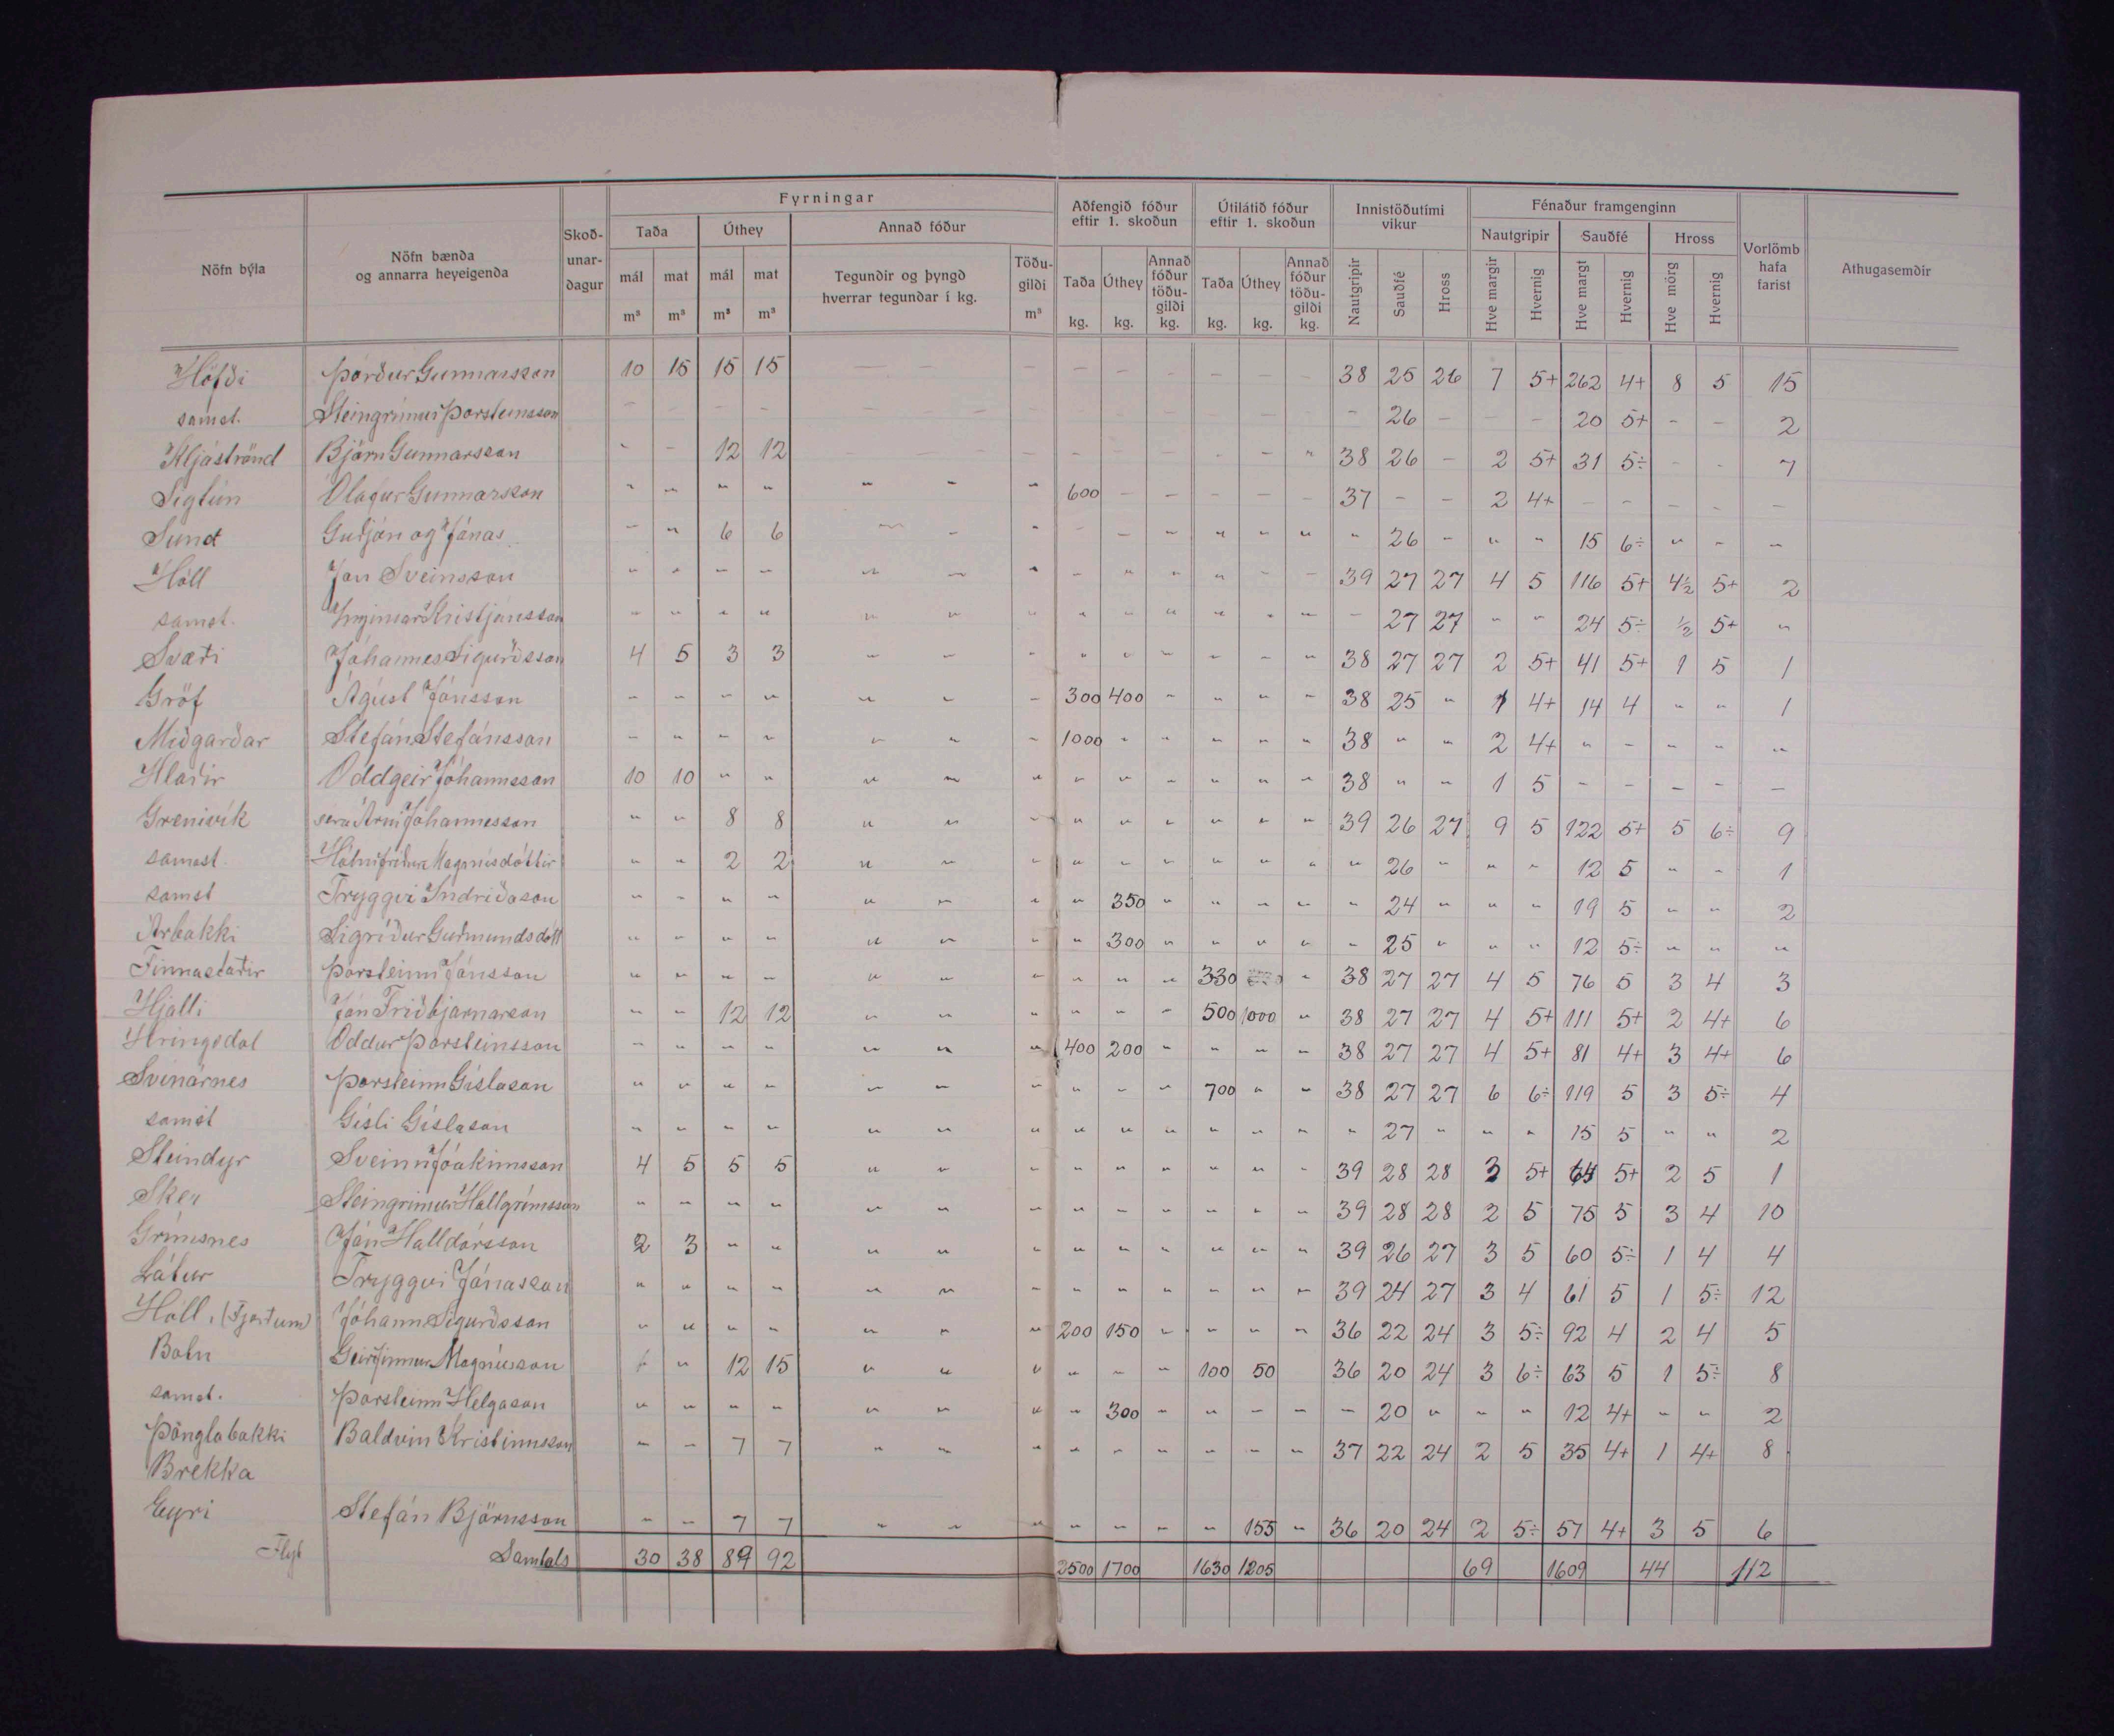 Fyrningar
Aðfengið fóður eftir 1. skoðun
Útilátið fóður eftir 1. skoðun
Innistöðutími vikur
Fénaður framgenginn
Nöfn býla
Nöfn bænda og annarra heyeigenda
Skoð-unar-dagur
Taða
Úthey
Annað fóður
Nautgripir
Sauðfé
Hross
Vorlömb hafa farist
Athugasemdir
mál m³
mat m³
mál m³
mat m³
Tegundir og þyngd hverrar tegundar í kg.
Töðu-gildi m³
Taða kg.
Úthey kg.
Annað fóður töðu-gildi kg.
Taða kg.
Úthey kg.
Annað fóður töðu-gildi kg.
Nautgripir
Sauðfé
Hross
Hve margir
Hvernig
Hve margt
Hvernig
Hve mörg
Hvernig
Höfði Þórður Gunnarsson 10 15 15 15 — — — — — — — — — 38 25 26 7 5+ 262 4+ 8 5 15
samst. Steingrímur Þorsteinsson - - - - - - - - - - - - - - 26 - - - 20 5+ - - 2
Kljáströnd Björn Gunnarsson - - 12 12 - - - - - - - - " 38 26 - 2 5+ 31 5÷ - - 7
Sigtún Ólafur Gunnarsson " " " " " " " 600 - - - - - 37 - - 2 4+ - - - - -
Sund Guðjón og Jónas - " 6 6 - - " - - - " " " " 26 - " " 15 6÷ " - -
Hóll Jón Sveinsson " " - - " - " - " " " - - 39 27 27 4 5 116 5+ 4½ 5+ 2
samst. Ingimar Kristjánsson - " " " " " " " " " " " - - 27 27 " " 24 5÷ ½ 5+ "
Svæði Jóhannes Sigurðsson 4 5 3 3 " - - " " - - - " 38 27 27 2 5+ 41 5+ 1 5 1
Gröf Ágúst Jónsson - - - " " " - 300 400 " " " " 38 25 " 1 4+ 14 4 " " 1
Miðgarðar Stefán Stefánsson - " - " " " - 1000 " " " " " 38 " " 2 4+ " - " " "
Hlaðir Oddgeir Jóhannsson 10 10 " " " " " " " " " " " 38 " " 1 5 - - - - -
Grenivík séra Árni Jóhannesson " " 8 8 " " - " " " " " " 39 26 27 9 5 122 5+ 5 6÷ 9
samst. Hólmfríður Magnúsdóttir " " 2 2 " " " " " " " " " " 26 " " " 12 5 " - 1
samst Tryggvi Indriðason " - " " " " " " 350 " " " " " 24 " " " 19 5 " " 2
Árbakki Sigríður Guðmundsdótt " " " " " " " " 300 " " " " " 25 " " " 12 5÷ " " "
Finnastaðir Þorsteinn Jónsson " " " " " " " " " " 330 " 38 27 27 4 5 76 5 3 4 3
Hjalli Jón Friðbjarnarson " " 12 12 " " " " " " 500 1000 " 38 27 27 4 5+ 111 5+ 2 4+ 6
Hringsdal Oddur Þorsteinsson " " " " " " " 400 200 " " " " 38 27 27 4 5+ 81 4+ 3 4+ 6
Svínárnes Þorsteinn Gíslason " " " " " " " " " " 700 " " 38 27 27 6 6÷ 119 5 3 5÷ 4
samst Gísli Gíslason " " " " " " " " " " " " " " 27 " " " 15 5 " " 2
Steindyr Sveinn Jóakimsson 4 5 5 5 " " " " " " " " " 39 28 28 3 5+ 5+ 2 5 1
Sker Steingrímur Hallgrímsson " " " " " " " " " " " " " 39 28 28 2 5 75 5 3 4 10
Grímsnes Jón Halldórsson 2 3 " " " " " " " " " " " 39 26 27 3 5 60 5÷ 1 4 4
Látur Tryggvi Jónasson " " " " " " " " " " " " " 39 24 27 3 4 61 5 1 5÷ 12
Hóll, (Fjörðum) Jóhann Sigurðsson " " " " " " " 200 150 " " " " 36 22 24 3 5÷ 92 4 2 4 5
Botn Geirfinnur Magnússon " " 12 15 " " " " " " 100 50 36 20 24 3 6÷ 63 5 1 5÷ 8
samst. Þorsteinn Helgason " " " " " " " " 300 " " " " " 20 " " " 12 4+ " " 2
Þönglabakki Baldvin Kristinnsson " " 7 7 " " " " " " " " " 37 22 24 2 5 35 4+ 1 4+ 8
Brekka
Eyri Stefán Björnsson " " 7 7 " " " " " " " 155 " 36 20 24 2 5÷ 57 4+ 3 5 6
Flyt Samtals 30 38 89 92 2500 1700 1630 1205 69 1609 44 112